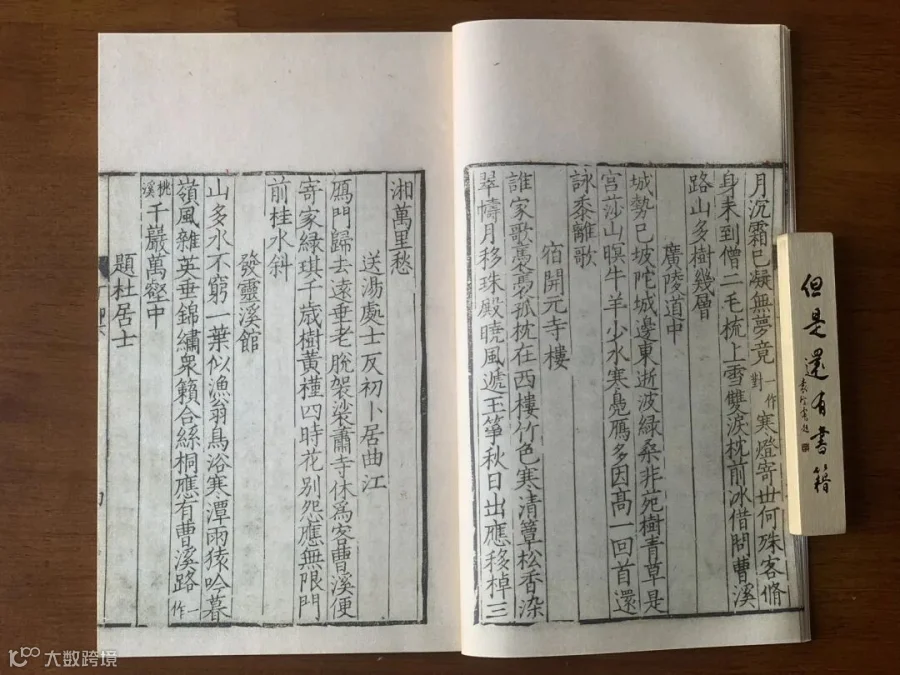 月沉霜已凝無夢竟一作對寒燈寄世何殊客脩
身未到僧二毛梳上雪雙淚枕前冰借問曹溪
路山多樹幾層
廣陵道中
城勢已坡陀城邊東逝波緑桑非苑樹青草是
宮莎山暝牛羊少水寒鳧鴈多因髙一回首還
詠黍離歌
宿開元寺樓
誰家歌褭褭孤枕在西樓竹色寒清簟松香染
翠幬月移珠殿曉風遞玉箏秋日出應移棹三
湘萬里愁
送湯處士反初卜居曲江
鴈門歸去遠垂老脫袈裟蕭寺休為客曹溪便
寄家緑琪千歳樹黃槿四時花别怨應無限門
前桂水斜
發靈溪館
山多水不窮一葉似漁翁鳥浴寒潭雨猿吟暮
嶺風雜英垂錦繡衆籟合絲桐應有曹溪路一作
桃溪千巖萬壑中
題杜居士
但是還有書籍
大数跨境